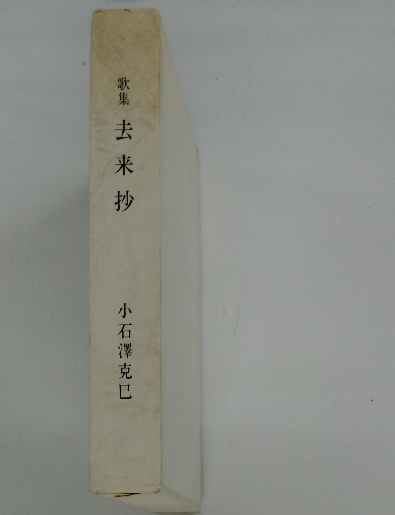 歌集 去来抄 小石澤克巳